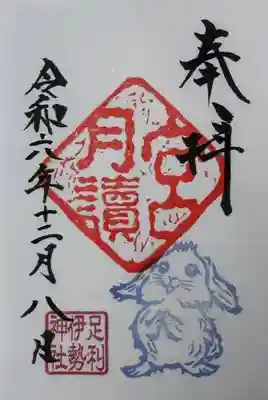 奉拝
月讀
宮
令和六年十二月八日
足利
伊勢
神社